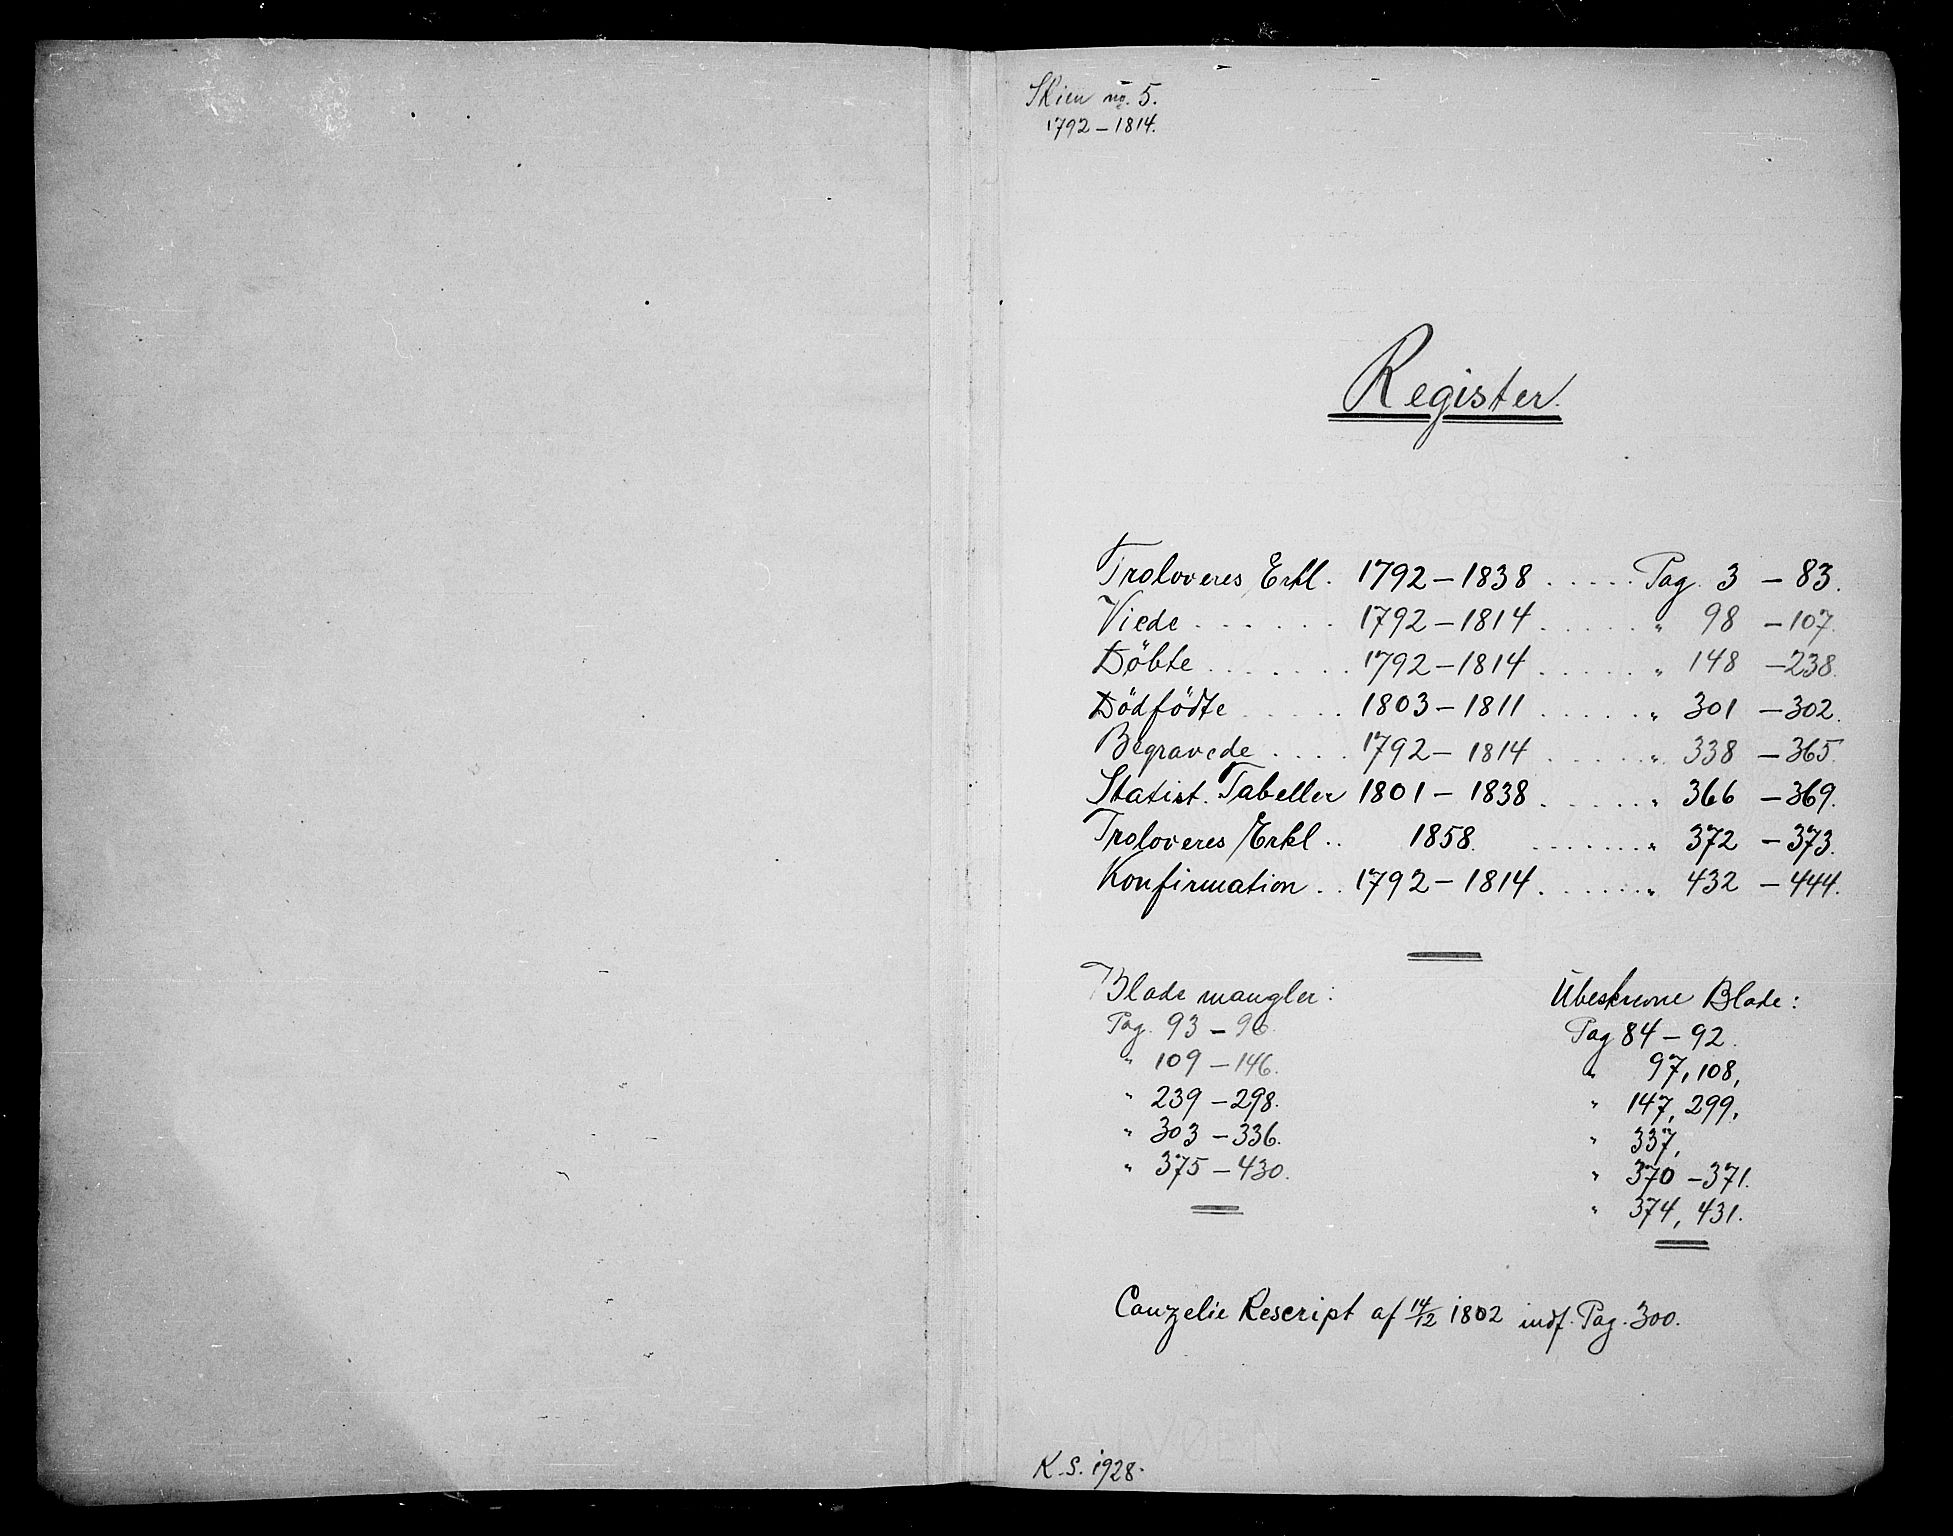 Skien no. 5.
1792 – 1814.
Register.
Troloveres Erkl. 1792 – 1838 . . . . . Pag. 3 – 83.
Viede . . . . . . 1792 – 1814 . . . . . " 98 – 107.
Döbte . . . . . . 1792 – 1814 . . . . . " 148 – 238.
Dödfödte . . . . 1803 – 1811 . . . . . " 301 – 302.
Begravede . . . . 1792 – 1814 . . . . . " 338 – 365.
Statist. Tabeller 1801 – 1838 . . . . . " 366 – 369.
Troloveres Erkl . . 1858. . . . . . . . " 372 – 373.
Konfirmation . . 1792 – 1814 . . . . . " 432 – 444.
Blade mangler:
Pag. 93 – 96.
" 109 – 146.
" 239 – 298.
" 303 – 336.
" 375 – 430.
Ubeskrevne Blade:
Pag 84 – 92.
" 97, 108,
" 147, 299,
" 337,
" 370 – 371.
" 374, 431.
Canzelie Rescript af 14/12 1802 indf. Pag. 300.
ALVØEN
K. S. 1928.